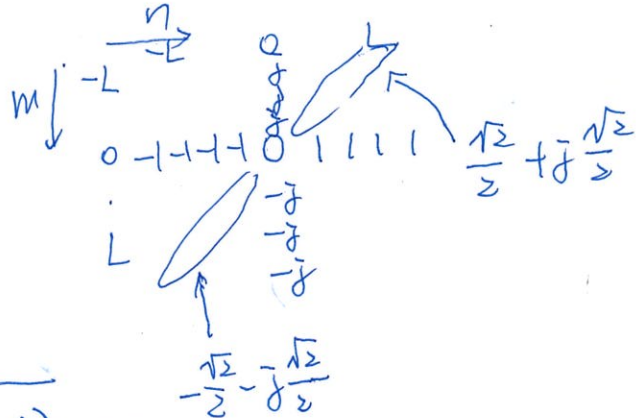 n
-L
-L
m
0
j
j
j
L
0 -1 -1 -1 -1 0 1 1 1 1
√2/2 + j √2/2
-j
-j
-j
L
-√2/2 - j √2/2